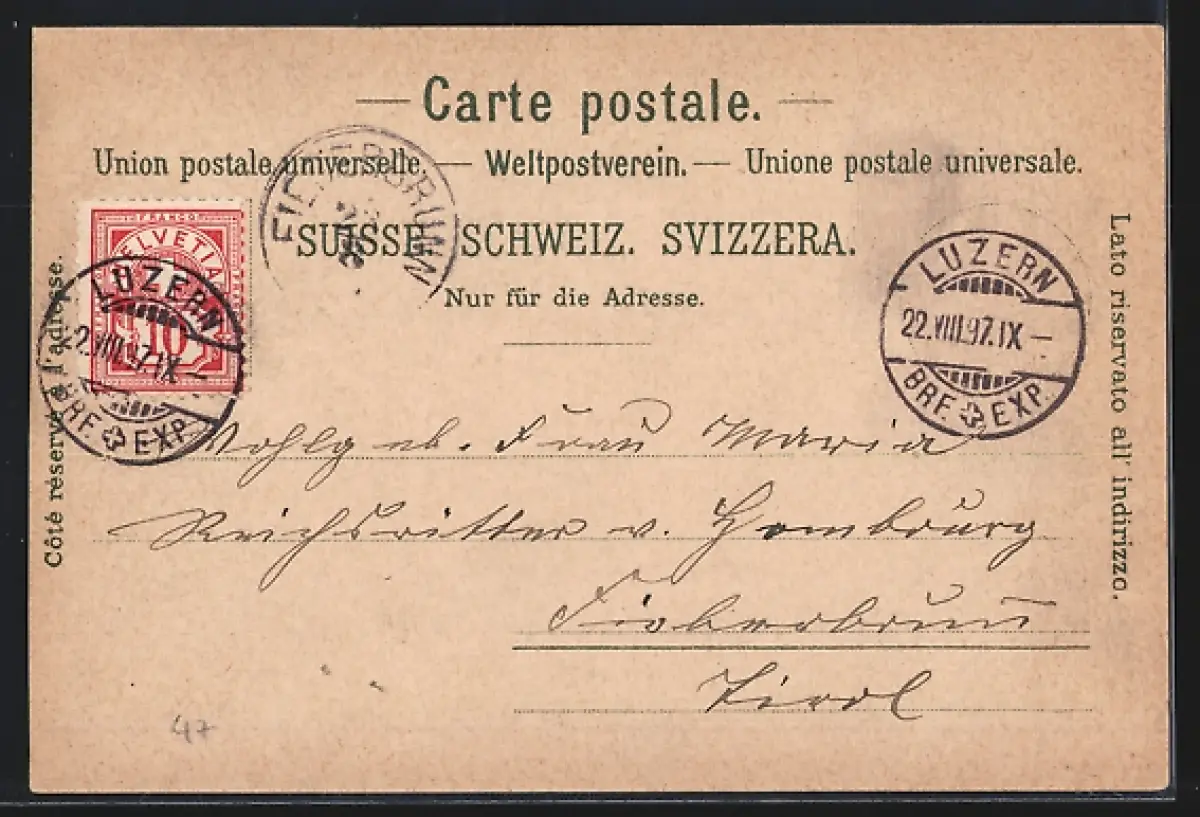 Carte postale.
Union postale universelle. — Weltpostverein. — Unione postale universale.
SUISSE. SCHWEIZ. SVIZZERA.
Nur für die Adresse.
Côté réservé à l'adresse.
Lato riservato all' indirizzo.
FRANCO
HELVETIA
10
LUZERN
22.VIII.97.IX–
BRF. EXP.
FIEBERBRUNN
LUZERN
22.VIII.97.IX–
BRF. EXP.
Wohlgeb. Frau Maria
Reichsritter v. Hombourg
Fieberbrunn
Tirol
47